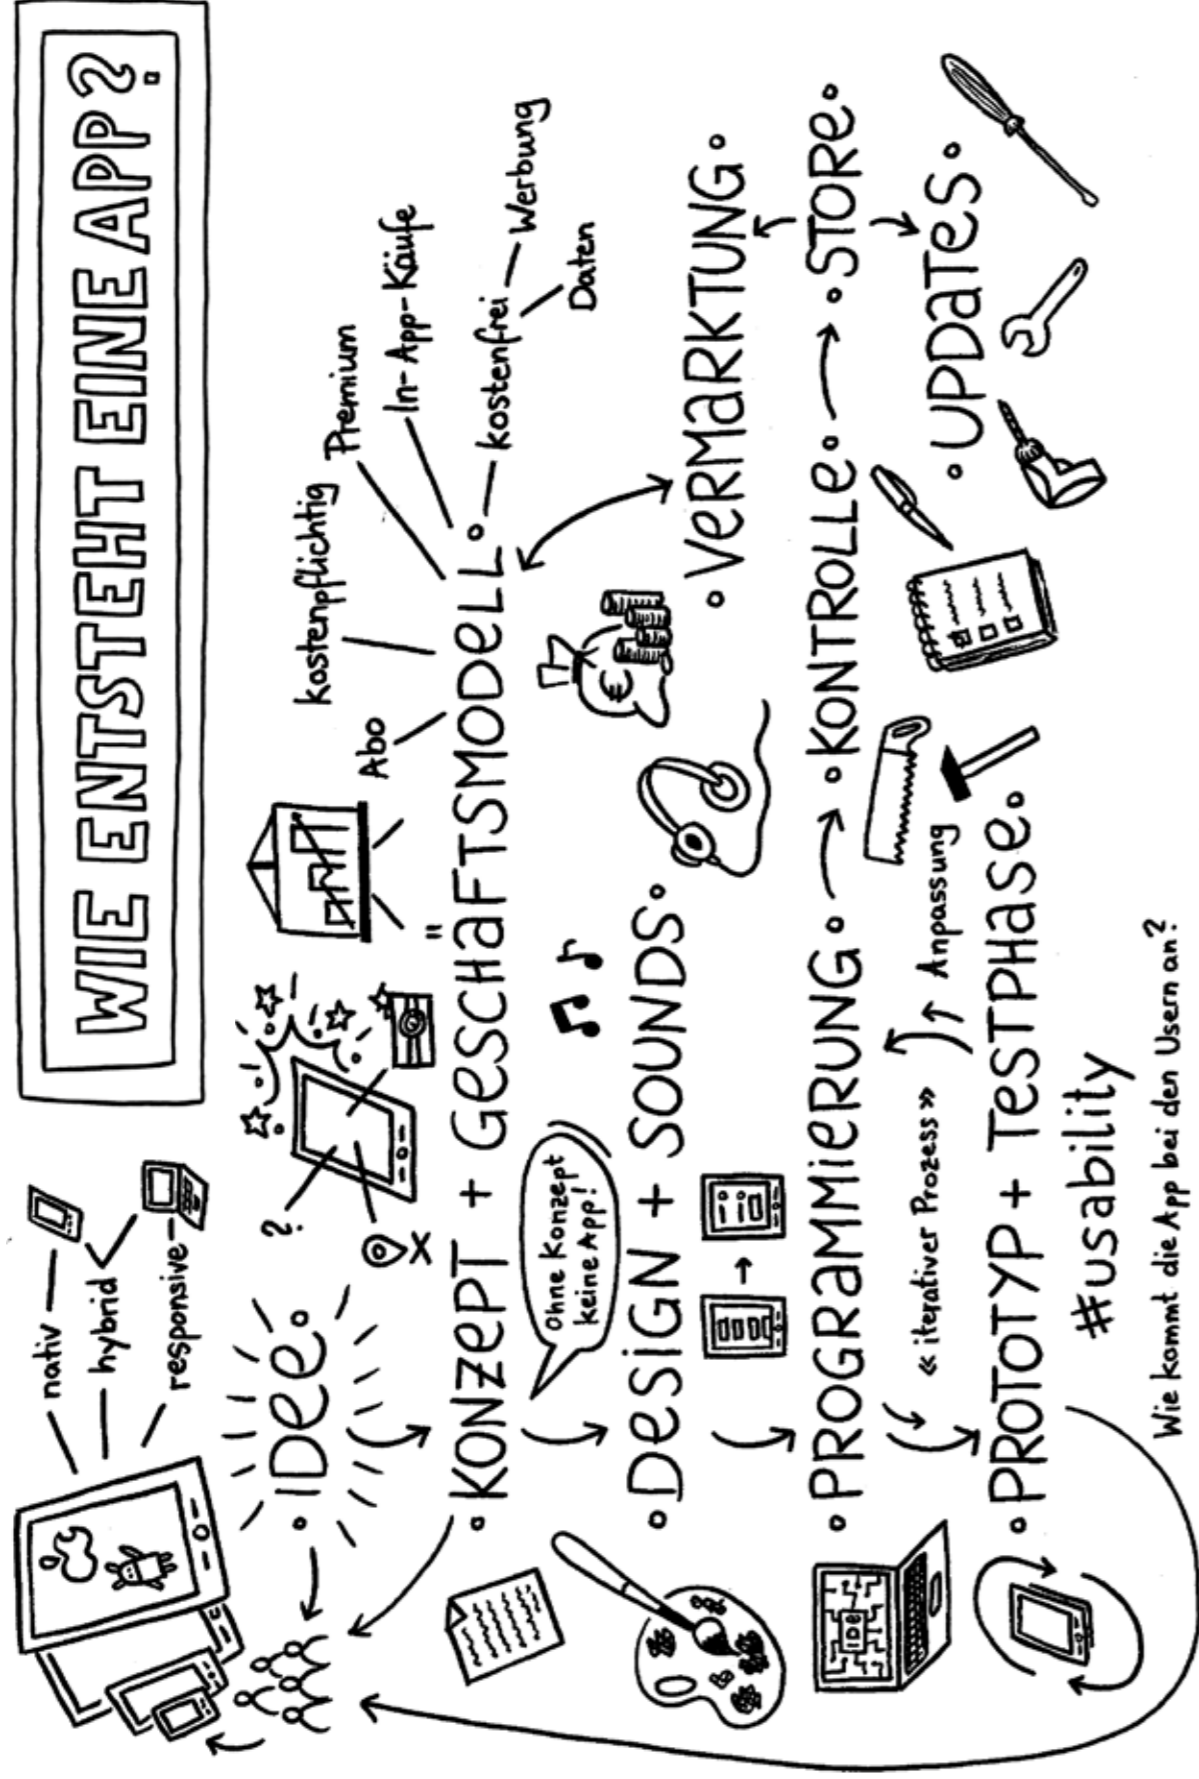 WIE ENTSTEHT EINE APP?
nativ
hybrid
responsive
IDEE
?
X
KONZEPT + GESCHÄFTSMODELL
Abo
kostenpflichtig
Premium
In-App-Käufe
kostenfrei
Werbung
Daten
Ohne Konzept
keine App!
€
DESIGN + SOUNDS
VERMARKTUNG
PROGRAMMIERUNG
KONTROLLE
STORE
IDE
« iterativer Prozess »
Anpassung
UPDATES
PROTOTYP + TESTPHASE
#usability
Wie kommt die App bei den Usern an?